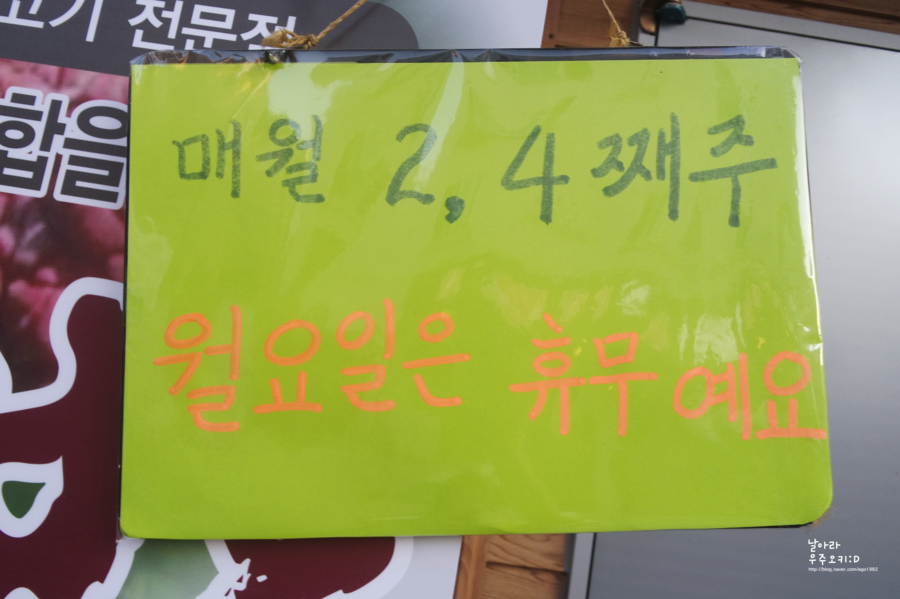 고기 전문점
합을
매월 2, 4째주
월요일은 휴무예요
날아라
우주오키:D
http://blog.naver.com/ego1982